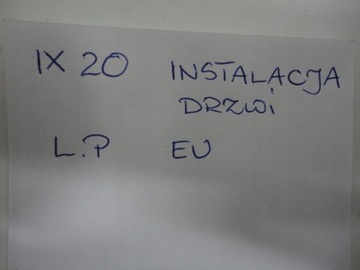 IX 20 INSTALACJA
DRZWI
L.P EU